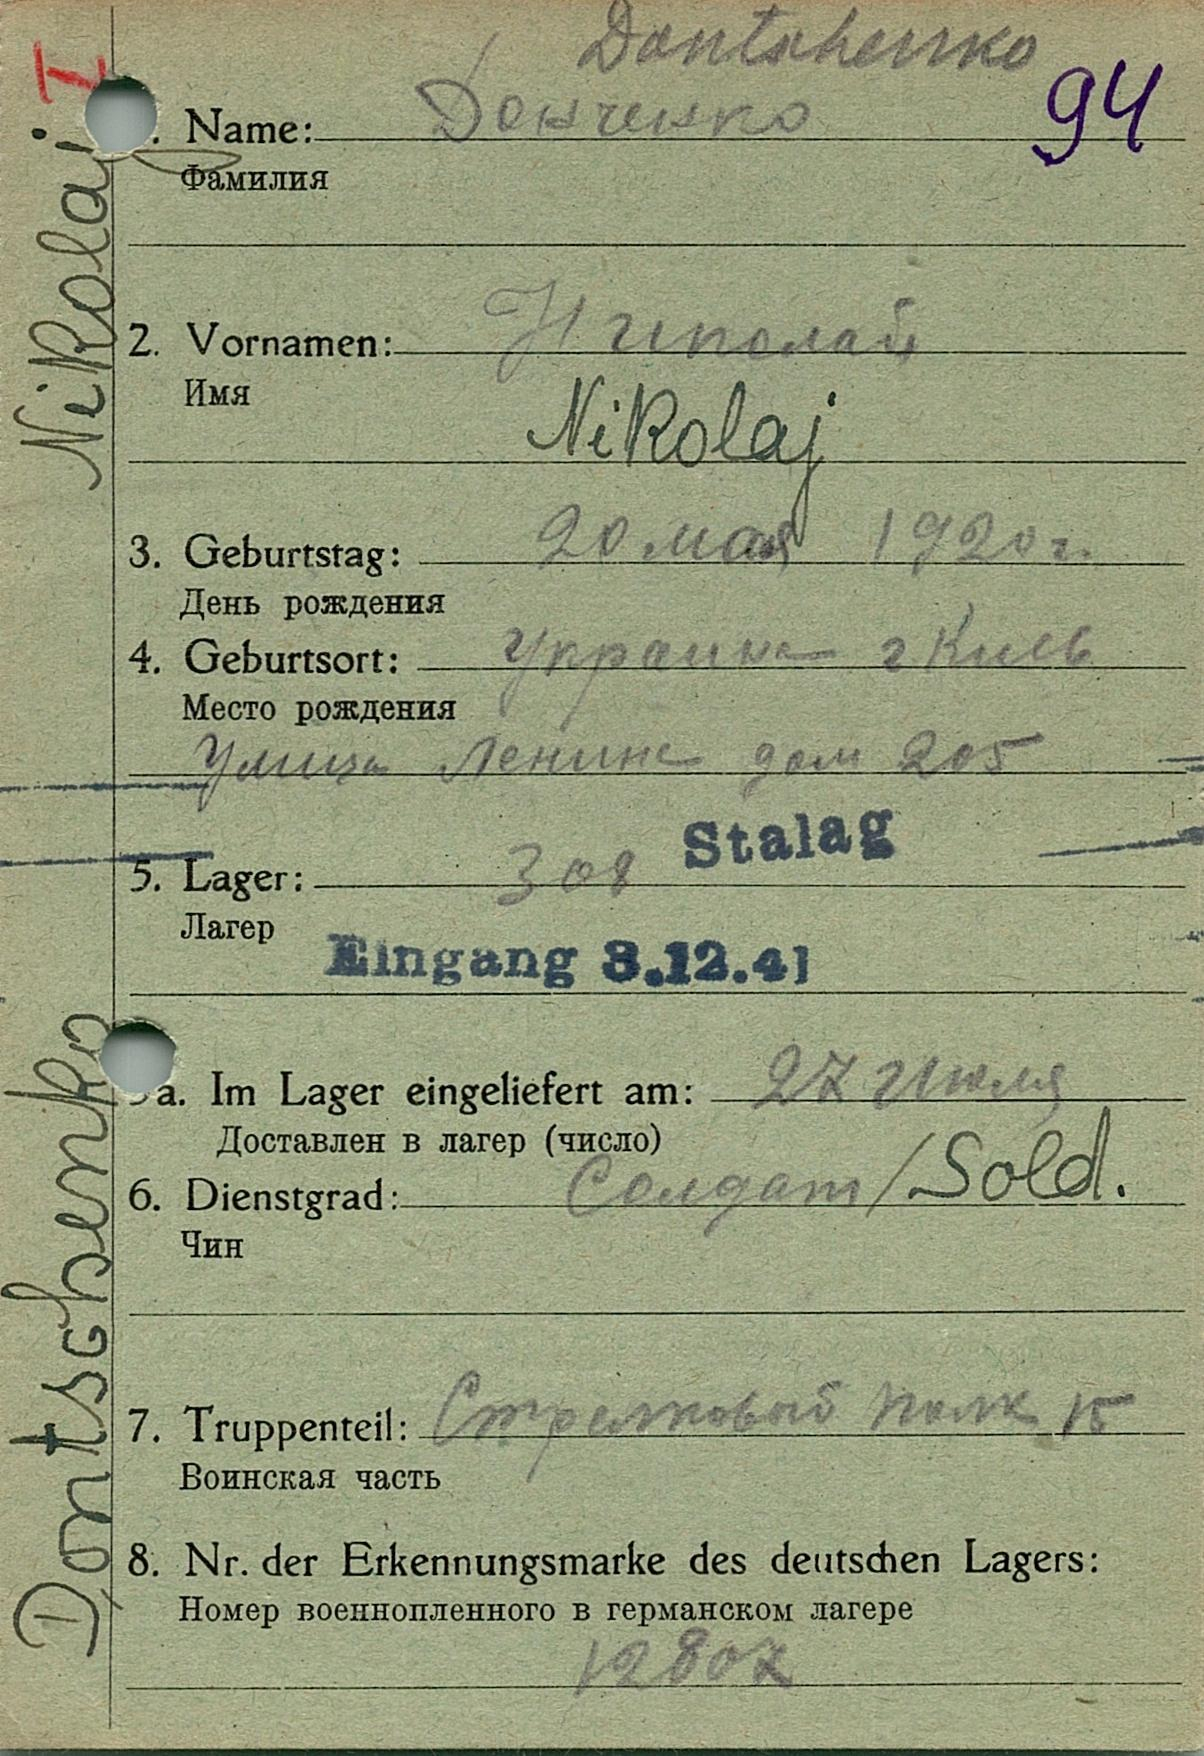 Dontschenko
94
. Name: Донченко
Фамилия
2. Vornamen: Николай
Имя
Nikolaj
3. Geburtstag: 20 мая 1920 г.
День рождения
4. Geburtsort: Украина г Киев
Место рождения
Улица Ленина дом 205
5. Lager: 308 Stalag
Лагер
Eingang 3.12.41
a. Im Lager eingeliefert am: 27 Июля
Доставлен в лагер (число)
6. Dienstgrad: Солдат / Sold.
Чин
7. Truppenteil: Стрелковый полк 15
Воинская часть
8. Nr. der Erkennungsmarke des deutschen Lagers:
Номер военнопленного в германском лагере
12807
Dontschenko Nikolaj